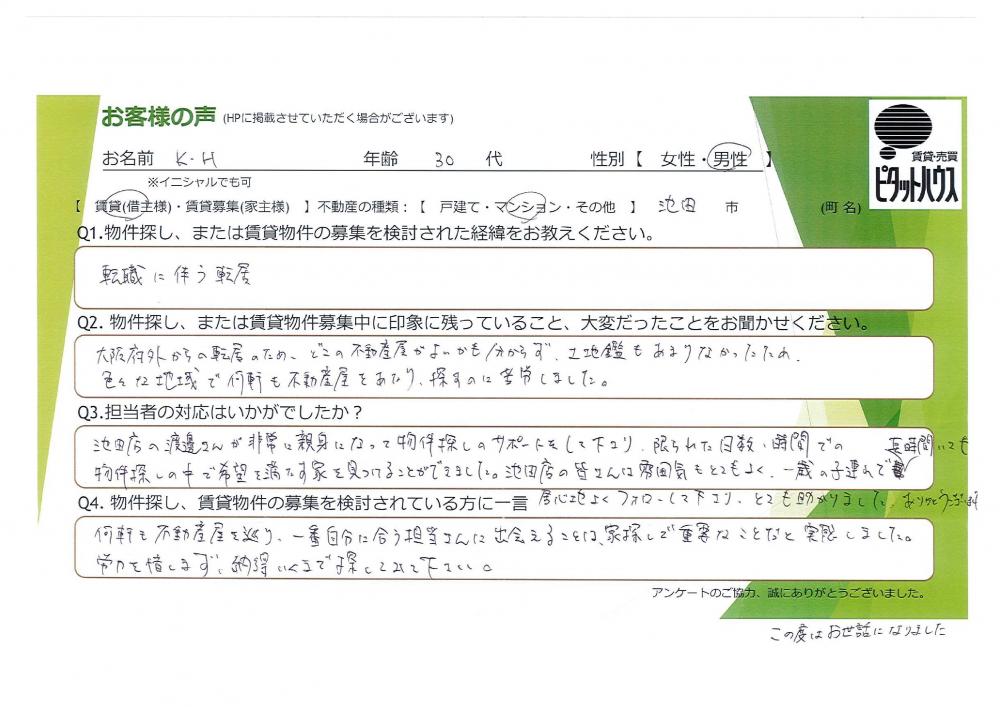 お客様の声 (HPに掲載させていただく場合がございます)
賃貸・売買
ピタットハウス
お名前 K・H 年齢 30 代 性別【 女性・男性 】
※イニシャルでも可
【 賃貸(借主様)・賃貸募集(家主様) 】不動産の種類：【 戸建て・マンション・その他 】 池田 市 (町 名)
Q1.物件探し、または賃貸物件の募集を検討された経緯をお教えください。
転職に伴う転居
Q2. 物件探し、または賃貸物件募集中に印象に残っていること、大変だったことをお聞かせください。
大阪府外からの転居のため、どこの不動産屋がよいかも分からず、土地鑑もあまりなかったため、
色々な地域で何軒も不動産屋をあたり、探すのに苦労しました。
Q3.担当者の対応はいかがでしたか？
池田店の渡邊さんが非常に親身になって物件探しのサポートをして下さり、限られた日数・時間での
物件探しの中で希望を満たす家を見つけることができました。池田店の皆さんは雰囲気もとてもよく、一歳の子連れで 長時間いても
居心地よくフォローして下さり、とても助かりました。ありがとうございます
Q4. 物件探し、賃貸物件の募集を検討されている方に一言
何軒も不動産屋を巡り、一番自分に合う担当さんに出会えることは、家探しで重要なことだなと実感しました。
労力を惜しまず、納得いくまで探してみて下さい。
アンケートのご協力、誠にありがとうございました。
この度はお世話になりました